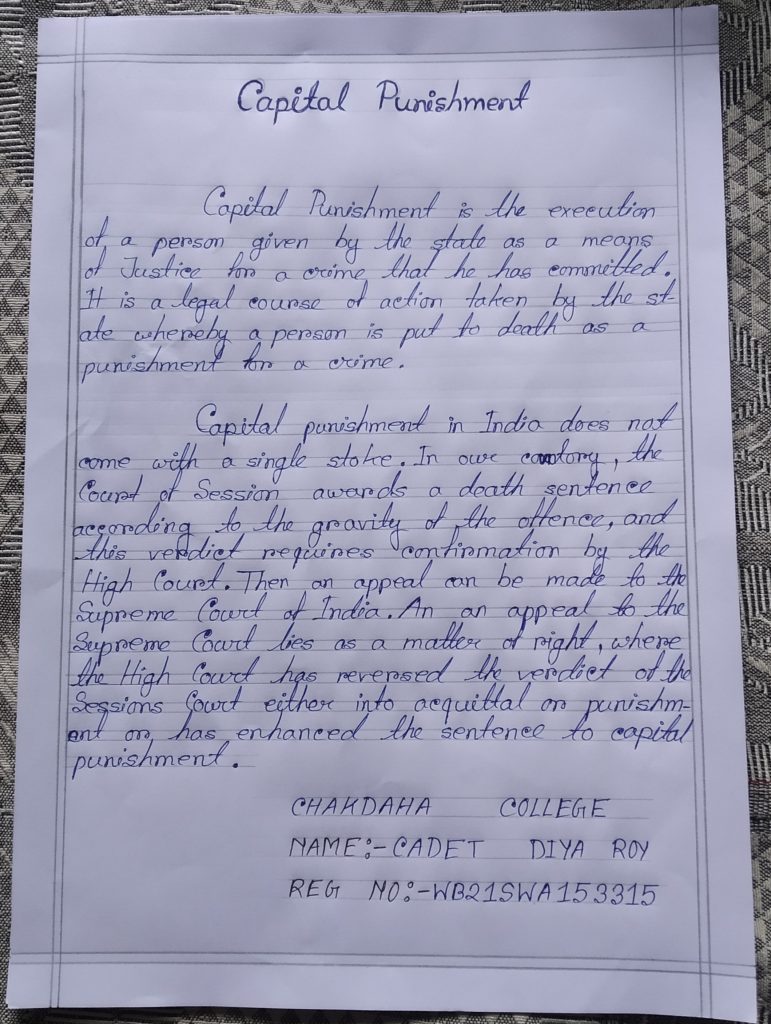 Capital Punishment
Capital Punishment is the execution
of a person given by the state as a means
of Justice for a crime that he has committed.
It is a legal course of action taken by the st-
ate whereby a person is put to death as a
punishment for a crime.
Capital punishment in India does not
come with a single stoke. In our contory, the
Court of Session awards a death sentence
according to the gravity of the offence, and
this verdict requires confirmation by the
High Court. Then an appeal can be made to the
Supreme Court of India. An an appeal to the
Supreme Court lies as a matter of right, where
the High Court has reversed the verdict of the
Sessions Court either into acquittal or punishm-
ent or has enhanced the sentence to capital
punishment.
CHAKDAHA COLLEGE
NAME:- CADET DIYA ROY
REG NO:-WB21SWA153315